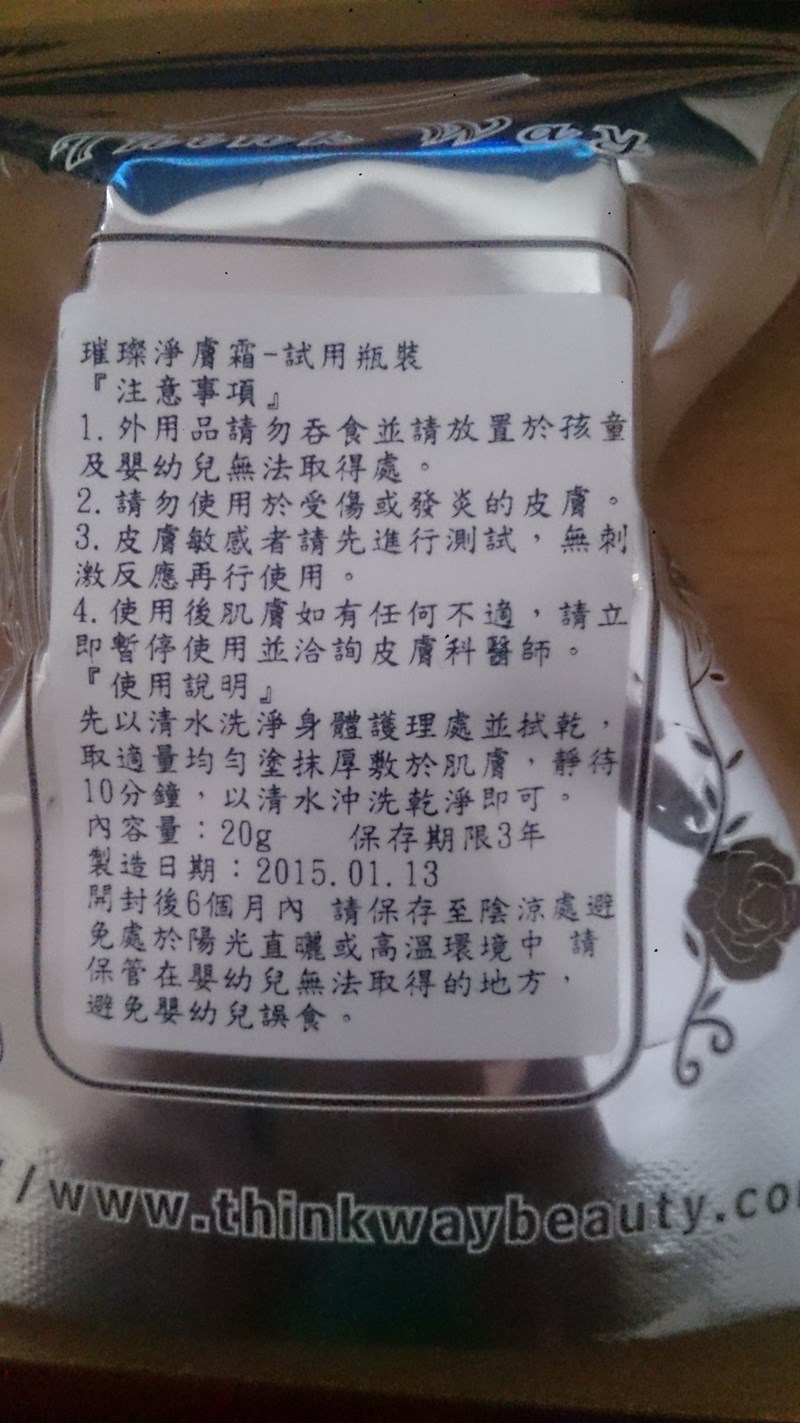 璀璨淨膚霜-試用瓶裝
『注意事項』
1.外用品請勿吞食並請放置於孩童
及嬰幼兒無法取得處。
2.請勿使用於受傷或發炎的皮膚。
3.皮膚敏感者請先進行測試，無刺
激反應再行使用。
4.使用後肌膚如有任何不適，請立
即暫停使用並洽詢皮膚科醫師。
『使用說明』
先以清水洗淨身體護理處並拭乾，
取適量均勻塗抹厚敷於肌膚，靜待
10分鐘，以清水沖洗乾淨即可。
內容量：20g 保存期限3年
製造日期：2015.01.13
開封後6個月內 請保存至陰涼處避
免處於陽光直曬或高溫環境中 請
保管在嬰幼兒無法取得的地方，
避免嬰幼兒誤食。
//www.thinkwaybeauty.co